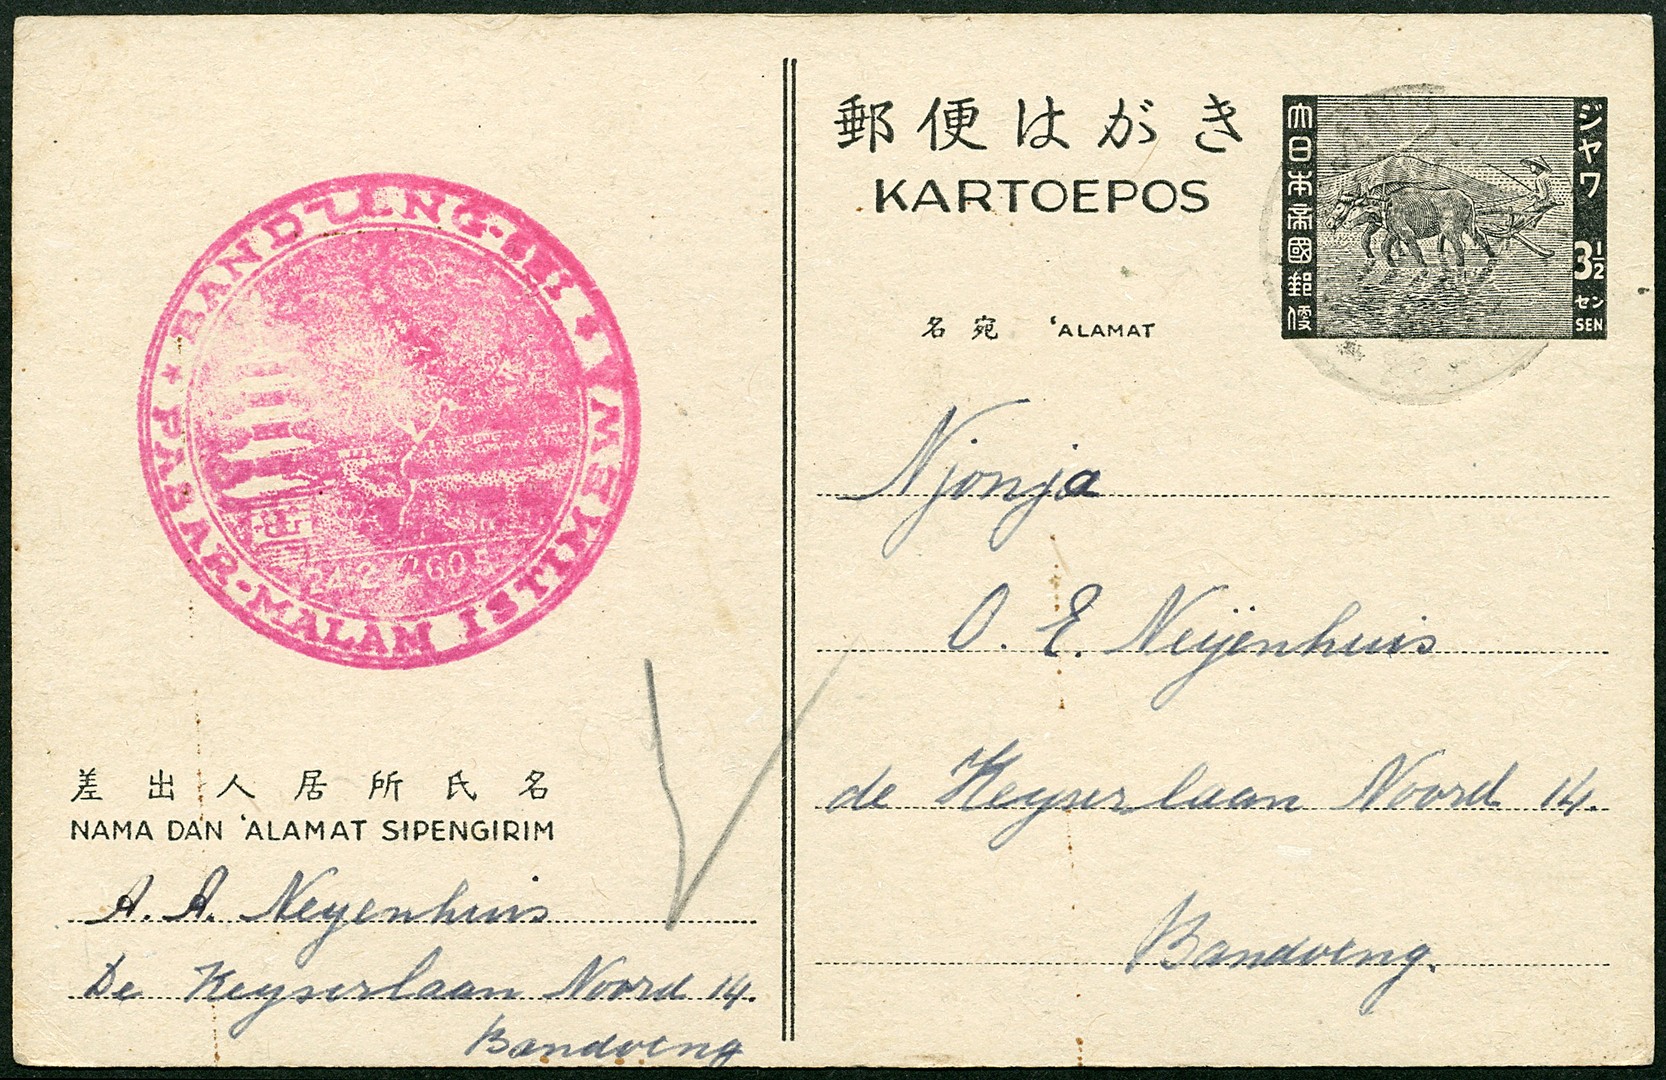 BANDUNG-SHI
PASAR-MALAM ISTIMEWA
24.2-2605
差出人居所氏名
NAMA DAN 'ALAMAT SIPENGIRIM
A. A. Neyenhuis
De Keyserlaan Noord 14.
Bandoeng
郵便はがき
KARTOEPOS
大日本帝國郵便
ジヤワ
3½
セン
SEN
名宛 'ALAMAT
Njonja
O. E. Neijenhuis
de Keyserlaan Noord 14.
Bandoeng.